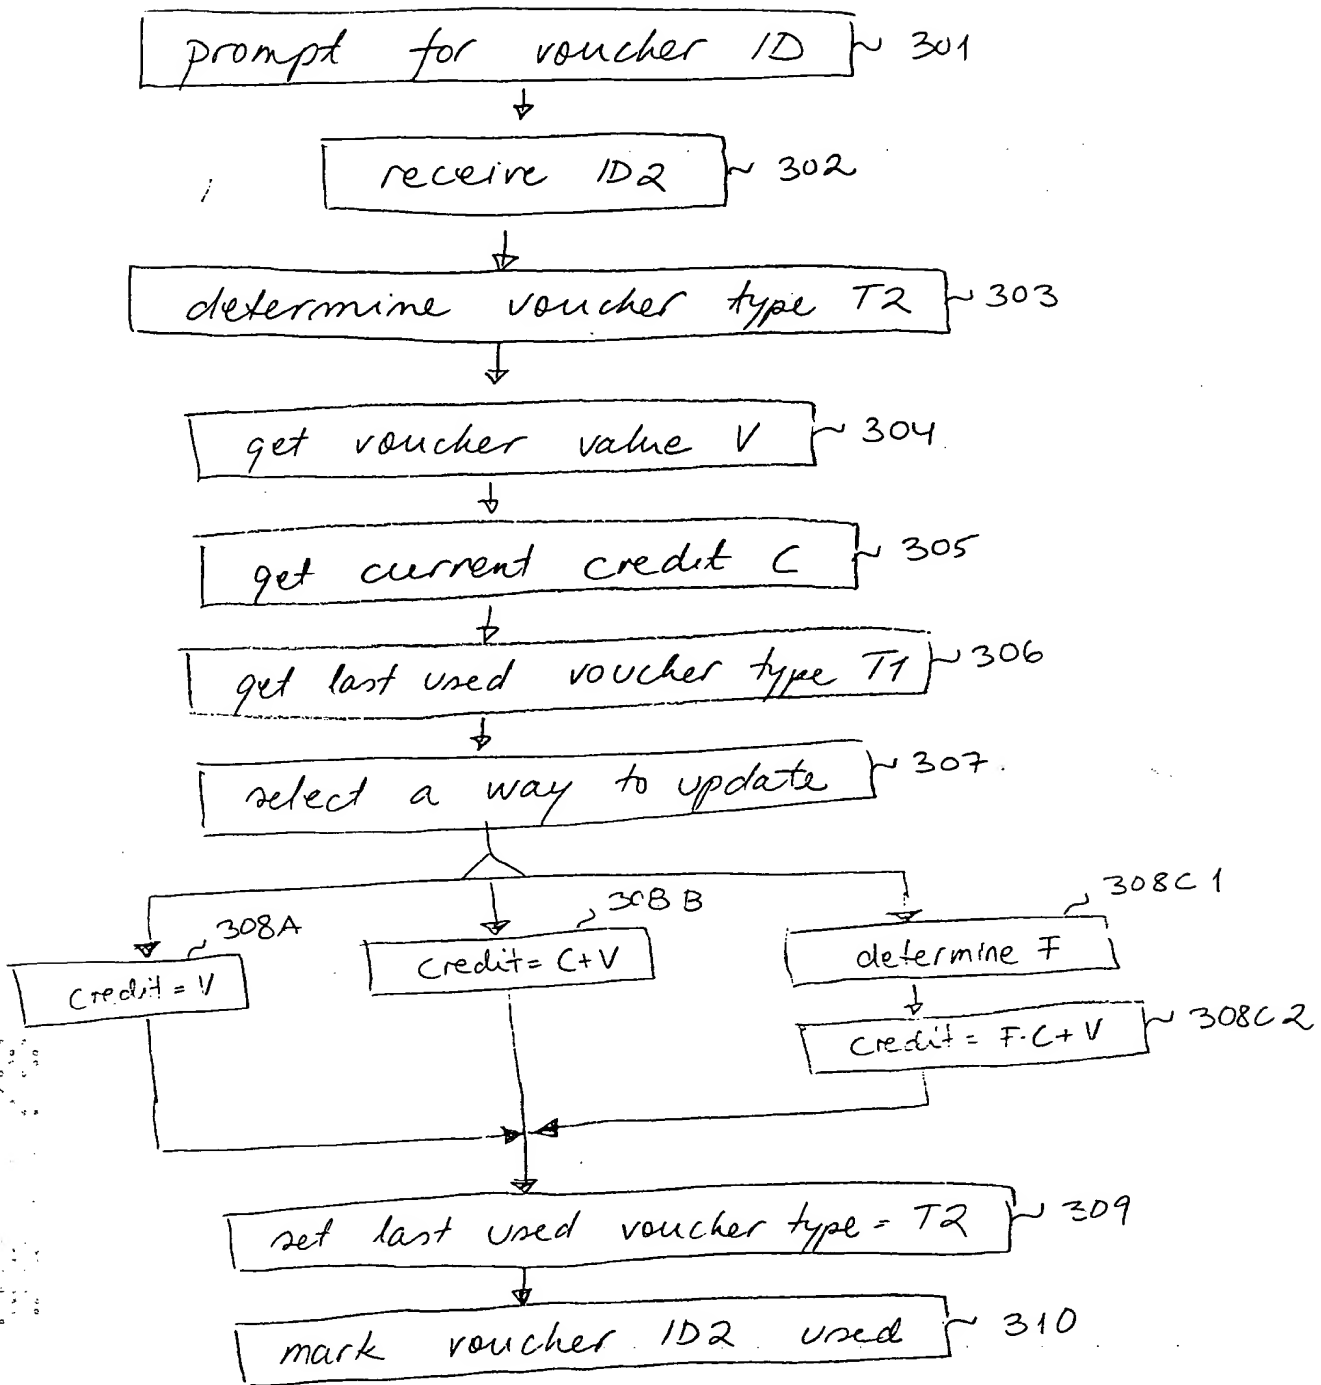 prompt for voucher ID 301
receive ID2 302
determine voucher type T2 303
get voucher value V 304
get current credit C 305
get last used voucher type T1 306
select a way to update 307
308A 308B 308C1
Credit = V
Credit = C+V
determine F
Credit = F·C+V 308C2
set last used voucher type = T2 309
mark voucher ID2 used 310